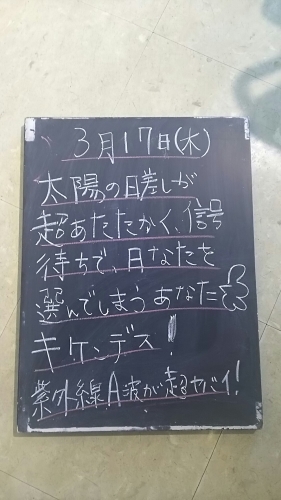 3月17日(木)
太陽の日差しが
超あたたかく、信号
待ちで、日なたを
選んでしまうあなた
キケンデス!
紫外線A波が超ヤバイ!